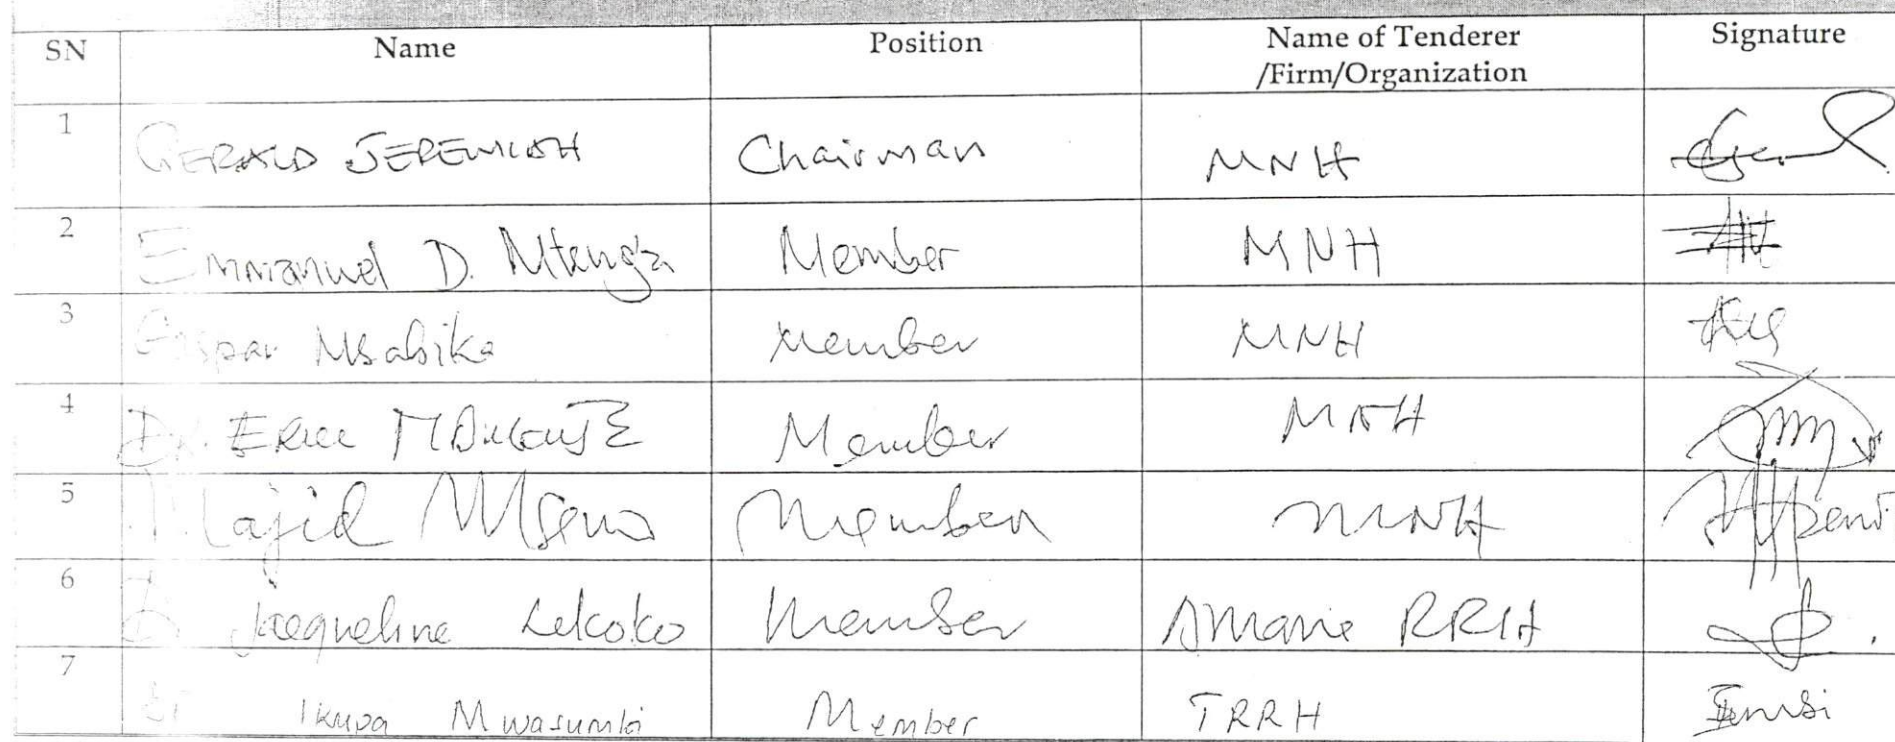 SN Name Position Name of Tenderer Signature
/Firm/Organization
1 GERALD JEREMIAH Chairman MNH
2 Emmanuel D. Mtenga Member MNH
3 Gaspar Msabika Member MNH
4 Dr. ERIC Member MNH
5 Majid Member MNH
6 Jacqueline Lekoko Member Amana RRH
7 Ikupa Mwasumbi Member TRRH